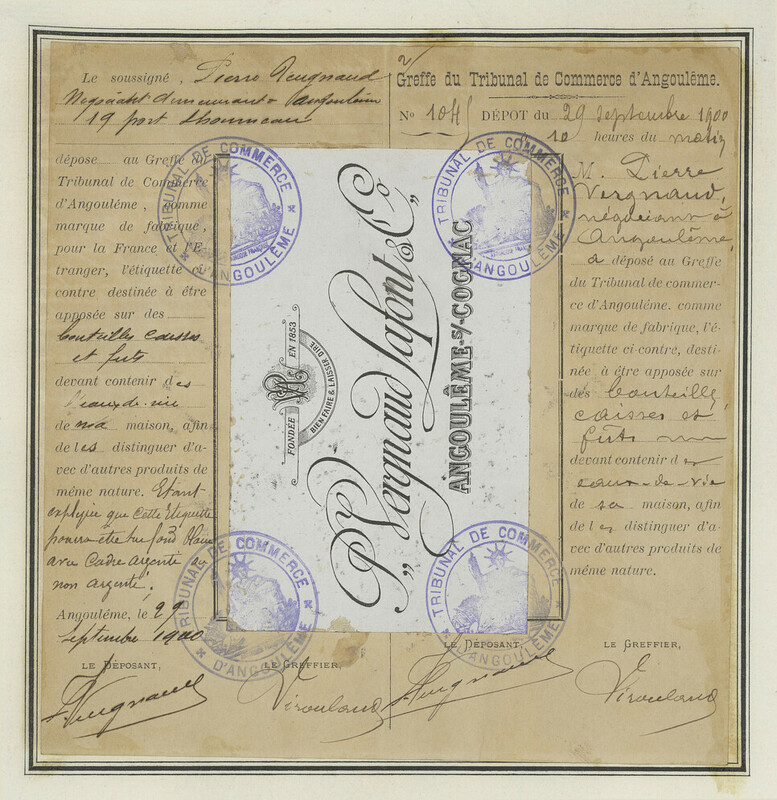 Le soussigné, Pierre Vergnaud
Négociant demeurant à Angoulême
19 port Lhoumeau
dépose au Greffe du
Tribunal de Commerce
d'Angoulême, comme
marque de fabrique,
pour la France et l'É-
tranger, l'étiquette ci-
contre destinée à être
apposée sur des
bouteilles caisses
et futs
devant contenir des
eaux-de-vie
de nos maison, afin
de les distinguer d'a-
vec d'autres produits de
même nature. Etant
expliqué que cette étiquette
pourra être sur fond blanc
avec Cadre argenté
non argenté.
Angoulême, le 29
septembre 1900
LE DÉPOSANT,
LE GREFFIER,
P. Vergnaud
Virouland
Greffe du Tribunal de Commerce d'Angoulême.
No 1045 DÉPOT du 29 septembre 1900
10 heures du matin
M. Pierre
Vergnaud,
négociant à
Angoulême,
a déposé au Greffe
du Tribunal de commer-
ce d'Angoulême. comme
marque de fabrique, l'é-
tiquette ci contre, desti-
née à être apposée sur
des bouteilles,
caisses et
futs
devant contenir des
eaux-de-vie
de sa maison, afin
de les distinguer d'a-
vec d'autres produits de
même nature.
LE DÉPOSANT,
LE GREFFIER,
P. Vergnaud
Virouland
FONDÉE EN 1853
BIEN FAIRE & LAISSER DIRE
„Pre Vergnaud Lafont & Co„
ANGOULÊME-S/-COGNAC
TRIBUNAL DE COMMERCE
D'ANGOULÊME
TRIBUNAL DE COMMERCE
D'ANGOULÊME
TRIBUNAL DE COMMERCE
D'ANGOULÊME
TRIBUNAL DE COMMERCE
D'ANGOULÊME